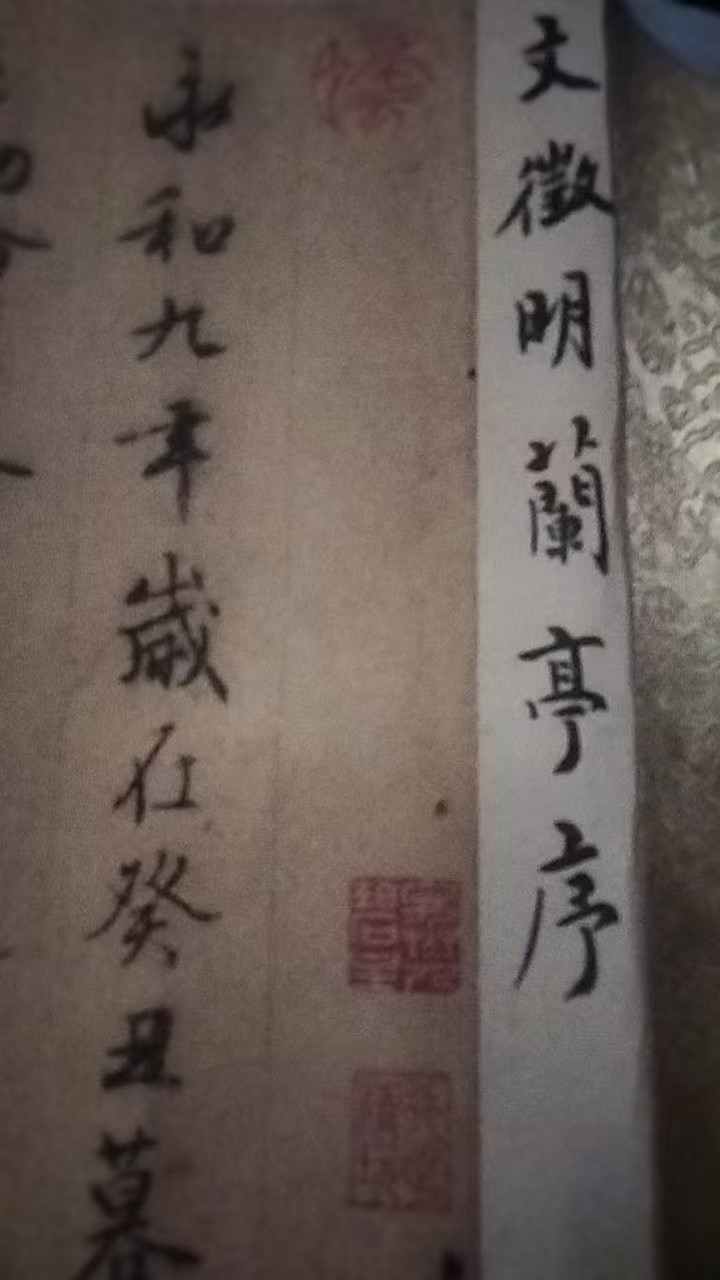 文徵明蘭亭序
永和九年歲在癸丑暮